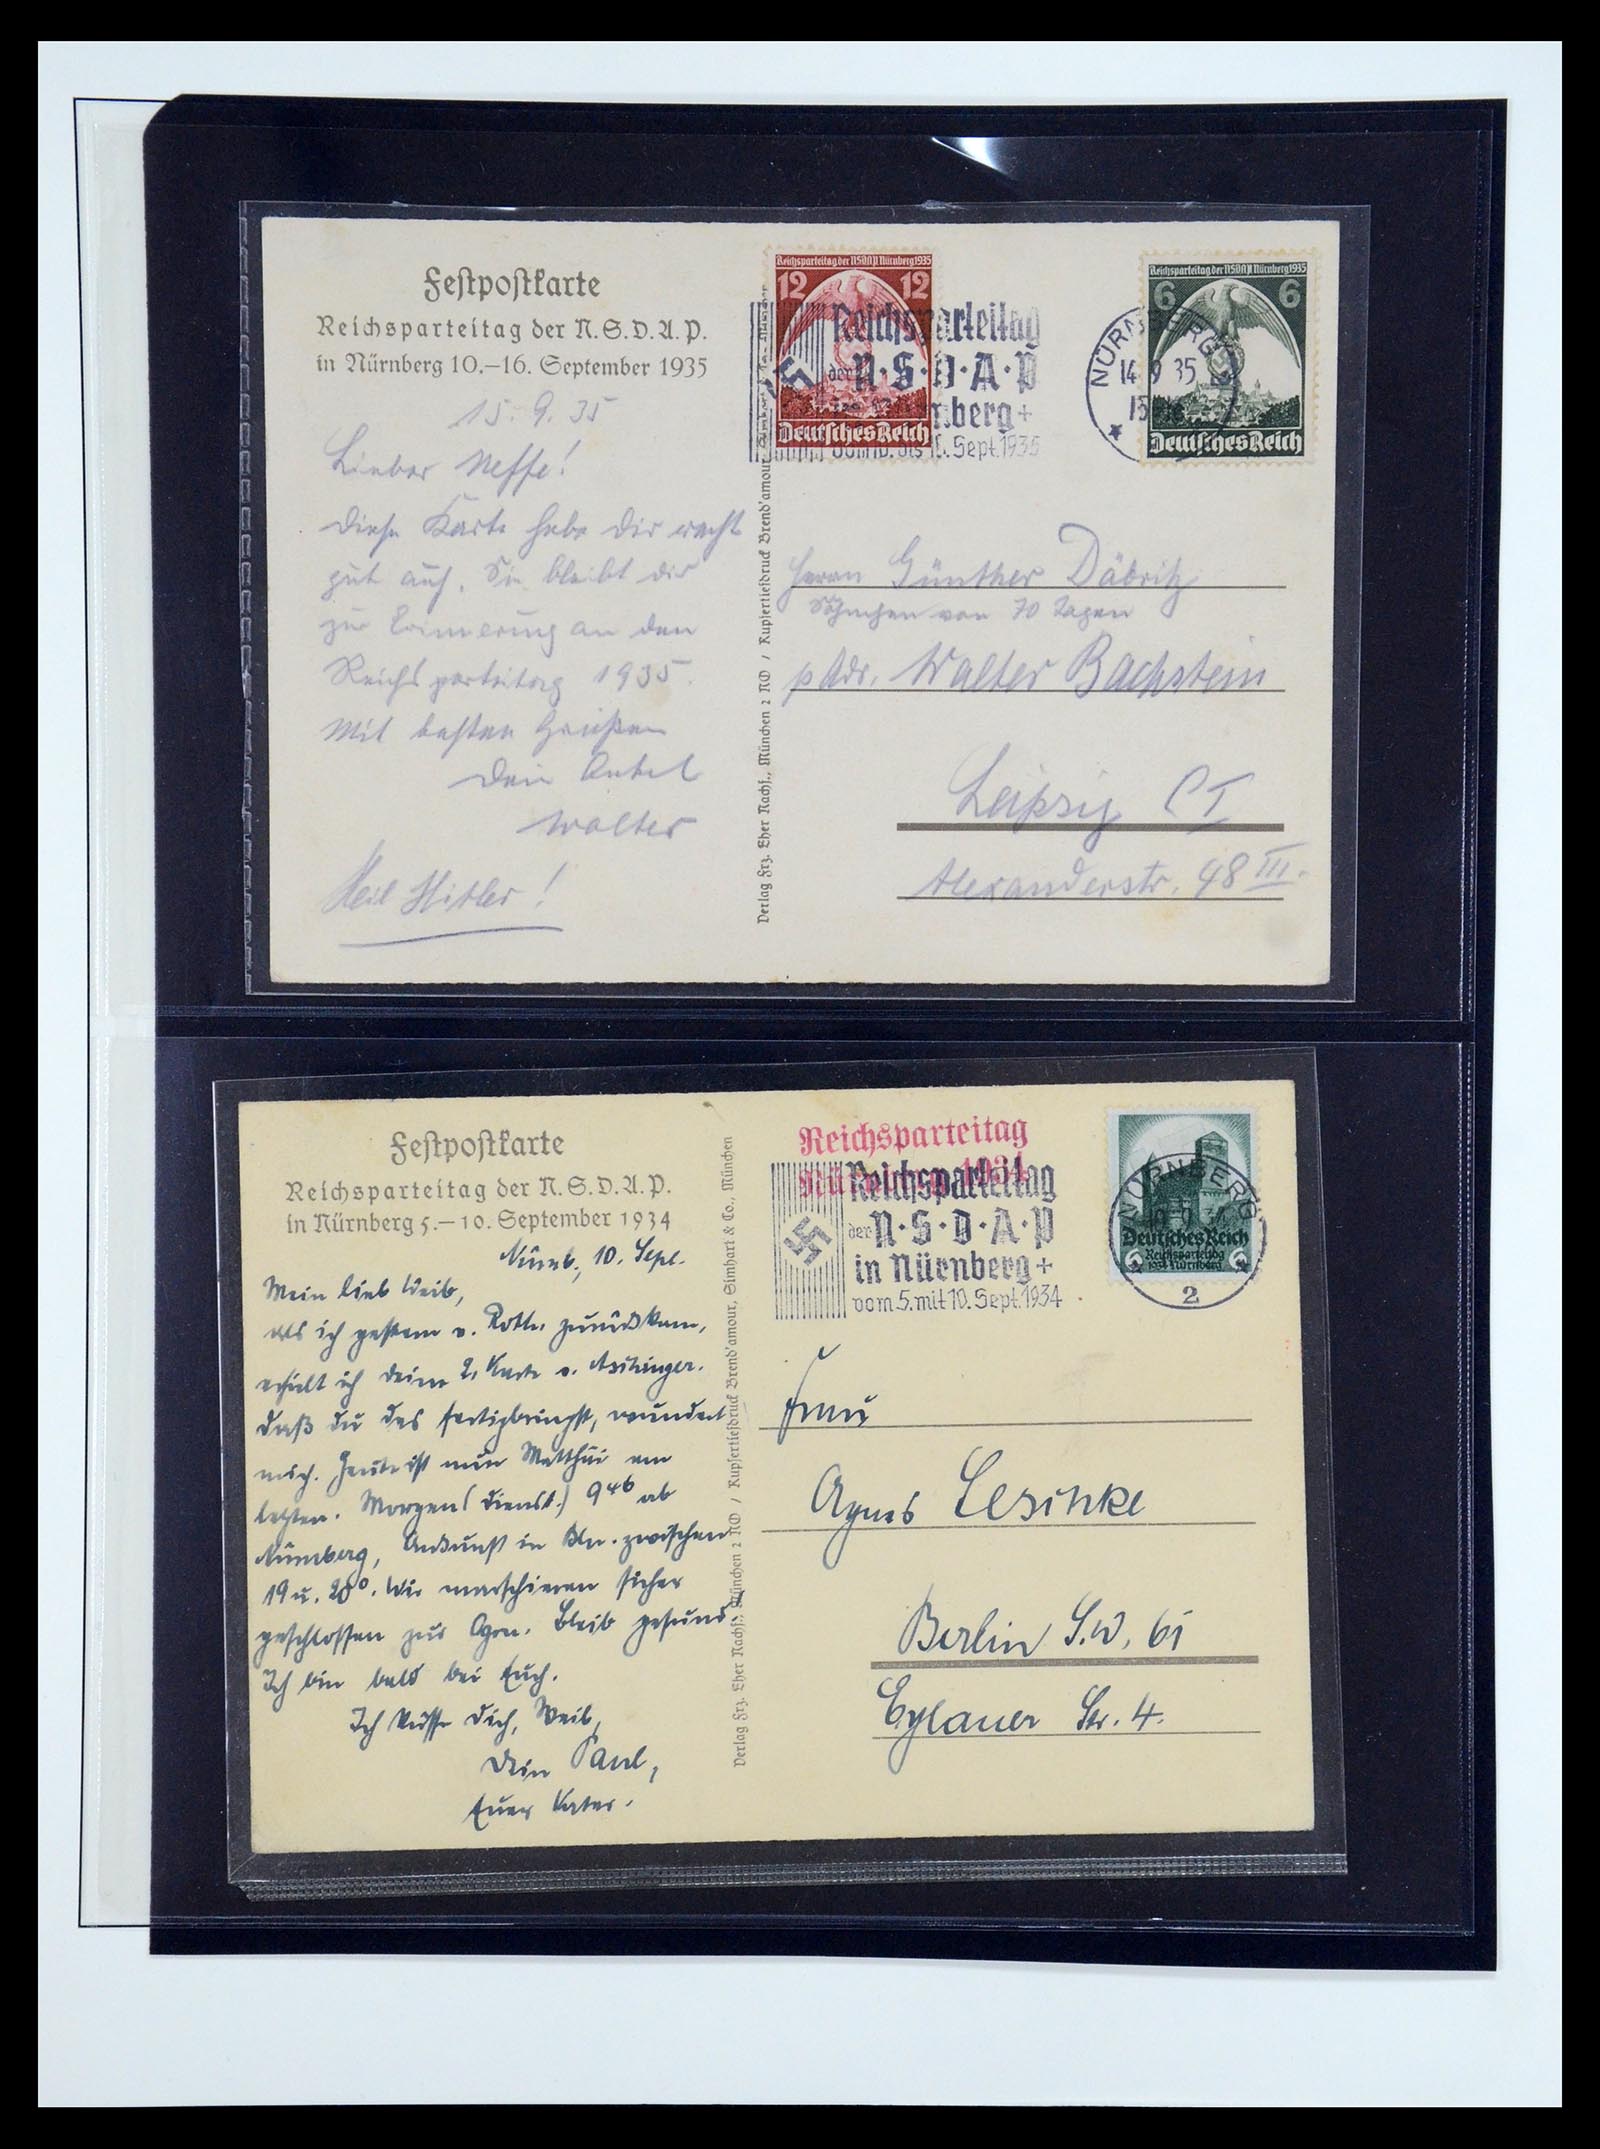 Festpostkarte
Reichsparteitag der N.S.D.A.P.
in Nürnberg 10.–16. September 1935
15. 9. 35
Lieber Neffe!
Diese Karte hebe Dir recht
gut auf. Sie bleibt dir
zur Erinnerung an den
Reichsparteitag 1935.
Mit besten Grüßen
Dein Onkel
Walter
Heil Hitler!
Verlag Frz. Eher Nachf., München 2 NO / Kupfertiefdruck Brend'amour, Simhart & Co., München
Reichsparteitag der NSDAP Nürnberg 1935
12 12
Deutsches Reich
Reichsparteitag
der N·S·D·A·P
in Nürnberg +
vom 10. bis 16. Sept. 1935
Reichsparteitag der NSDAP Nürnberg 1935
6 6
Deutsches Reich
NÜRNBERG
14 9 35
Herrn Günther Däbritz
Söhnchen von 70 Tagen
p Adr. Walter Bachstein
Leipzig C I
Alexanderstr. 48 III.
Festpostkarte
Reichsparteitag der N.S.D.A.P.
in Nürnberg 5.–10. September 1934
Nürnb., 10. Sept.
Mein lieb Weib,
als ich gestern v. Roth. zurückkam,
erhielt ich deine 2. Karte v. Aschinger.
daß du das fertigbringst, wundert
mich. Heute ist nun Matthäi am
letzten. Morgen (Dienst.) 9 46 ab
Nürnberg, Ankunft in Bln. zwischen
19 u. 20⁰. Wir marschieren sicher
geschlossen zur Ogru. Bleib gesund.
Ich bin bald bei Euch.
Ich küsse Dich, Weib,
Dein Paul,
Euer Vater.
Verlag Frz. Eher Nachf., München 2 NO / Kupfertiefdruck Brend'amour, Simhart & Co., München
Reichsparteitag
Nürnberg 1934
Reichsparteitag
der N·S·D·A·P
in Nürnberg +
vom 5. mit 10. Sept. 1934
NÜRNBERG
10 9 34
2
Deutsches Reich
6 Reichsparteitag 6
1934 Nürnberg
Frau
Agnes Leschke
Berlin S.W. 61
Eylauer Str. 4.